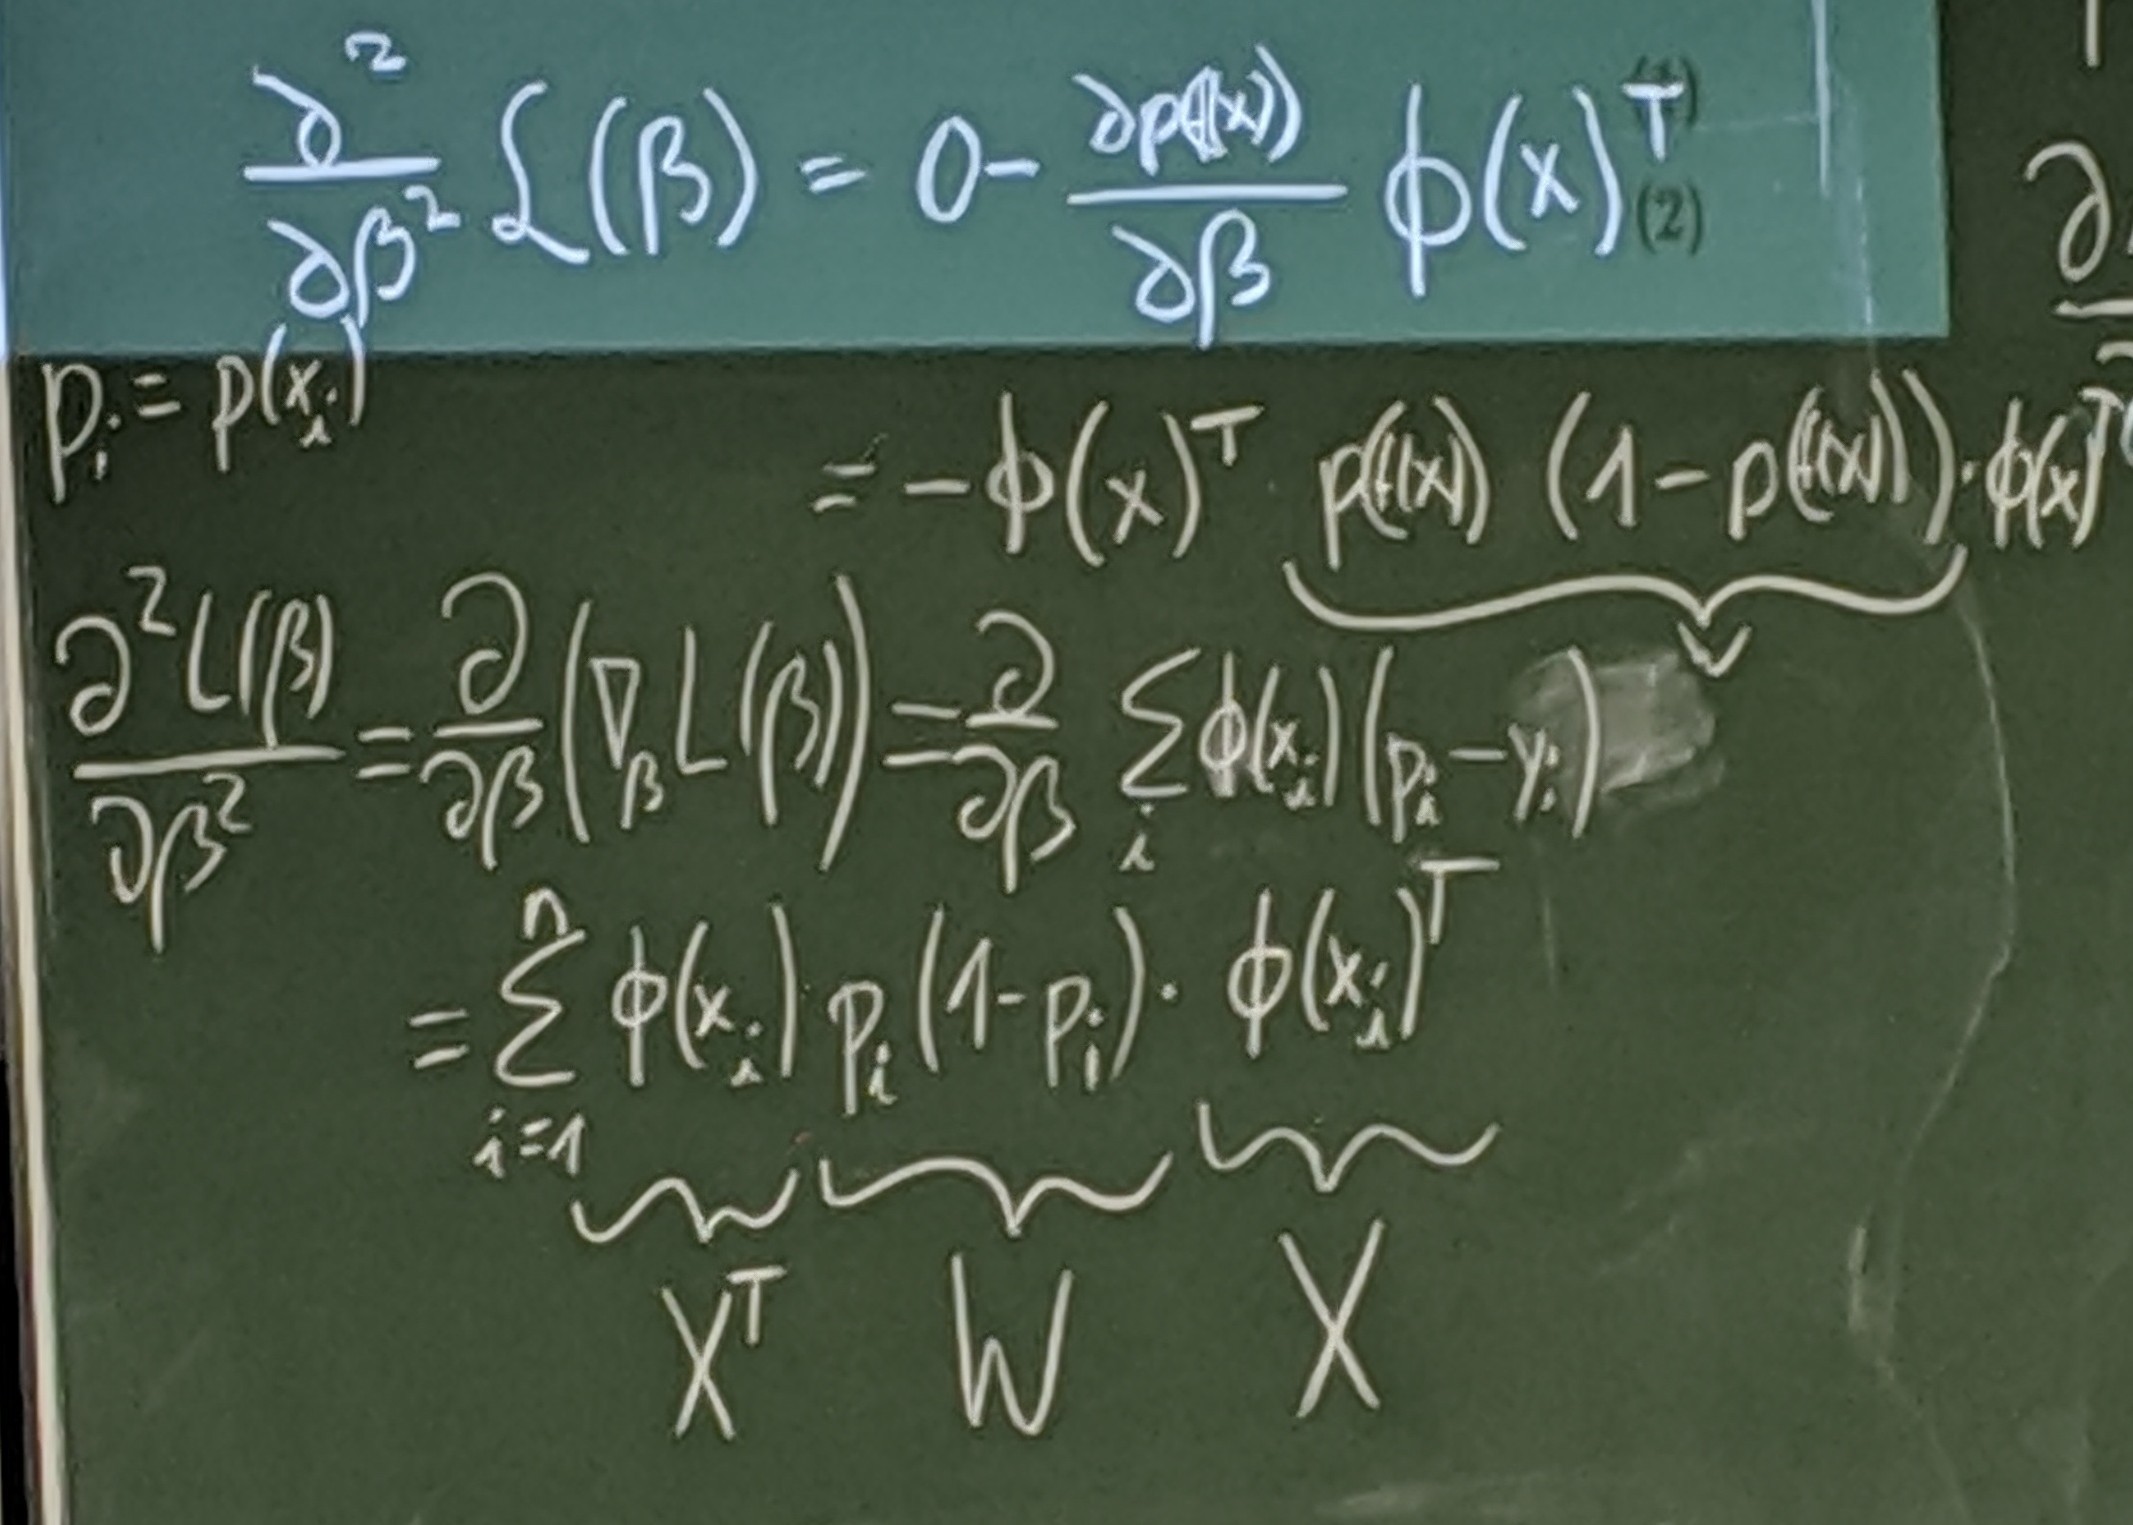 ∂²/∂β² ℒ(β) = 0 - ∂p(f(x))/∂β ϕ(x)ᵀ
(2)
pᵢ = p(xᵢ)
= -ϕ(x)ᵀ p(f(x)) (1-p(f(x)))·ϕ(x)ᵀ
∂²L(β)/∂β² = ∂/∂β (∇_β L(β)) = ∂/∂β ∑ᵢ ϕ(xᵢ)(pᵢ-yᵢ)
= ∑ᵢ₌₁ⁿ ϕ(xᵢ) pᵢ(1-pᵢ)·ϕ(xᵢ)ᵀ
Xᵀ W X